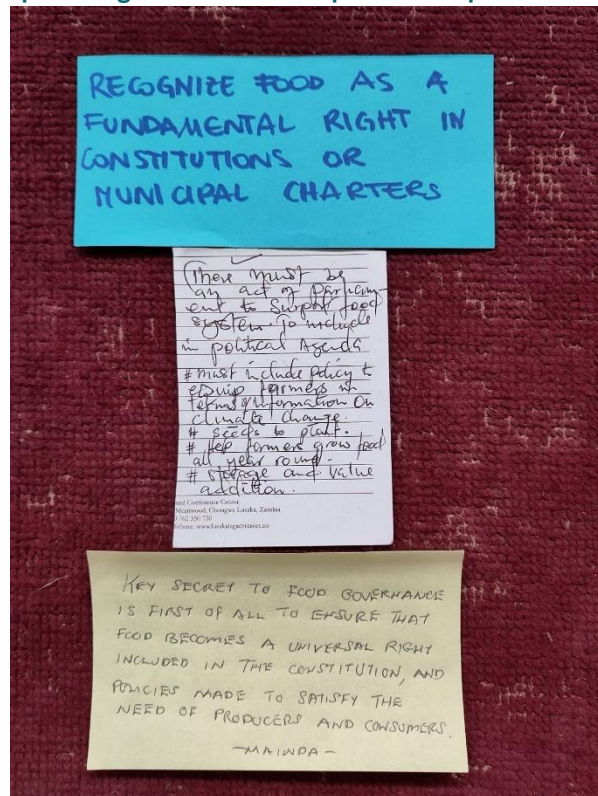 RECOGNIZE FOOD AS A
FUNDAMENTAL RIGHT IN
CONSTITUTIONS OR
MUNICIPAL CHARTERS
There must be
an act of Parliam-
ent to Support food
system. To include
in political Agenda
# must include policy to
equip farmers in
terms of information on
climate change.
# seeds to plant.
# Help farmers grow food
all year round.
# storage and value
addition.
and Conference Center
Meanwood, Chongwe Lusaka, Zambia
0762 350 730
Website: www.lusakalegacyresort.co
KEY SECRET TO FOOD GOVERNANCE
IS FIRST OF ALL TO ENSURE THAT
FOOD BECOMES A UNIVERSAL RIGHT
INCLUDED IN THE CONSTITUTION, AND
POLICIES MADE TO SATISFY THE
NEED OF PRODUCERS AND CONSUMERS.
-MAINDA-